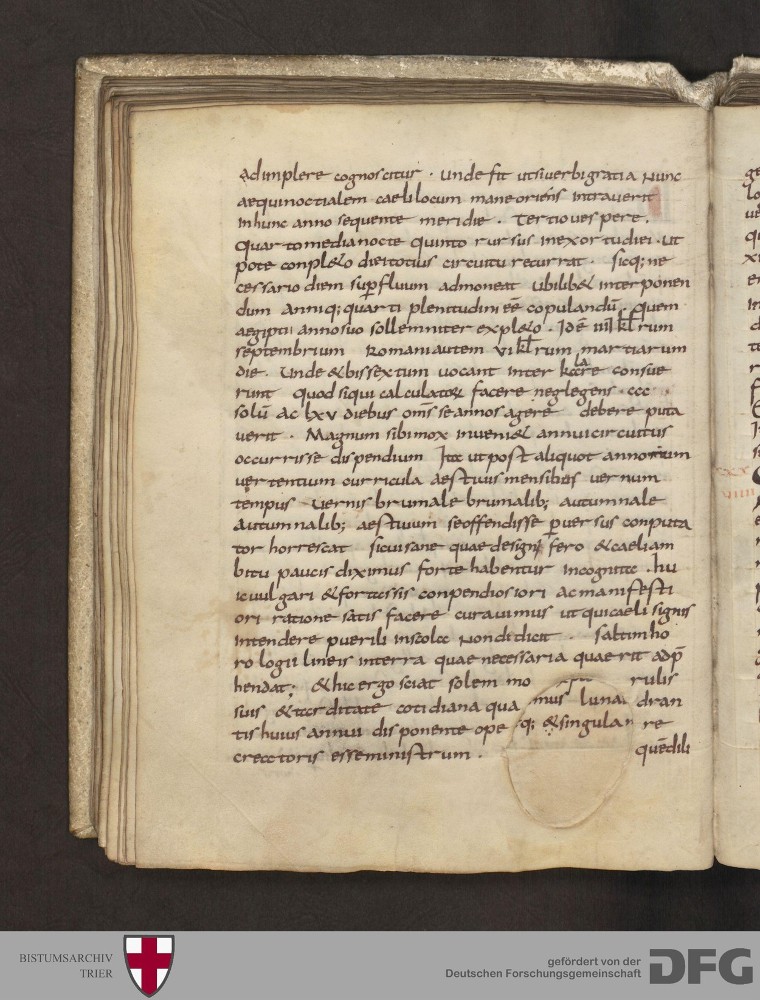 adimplere cognoscitur . unde fit utsiverbigratia Nunc
aequinoctialem caelilocum maneoriens intraverit
Inhunc anno sequente meridie . Tertiovespere .
quartomedianocte quinto rursus inexortudiei . ut
pote conpl&o diei totius circuitu recurrat . Sicq; ne
cessario diem sup̄fluum admoneat ubilib& interponen
dum anniq; quarti plenitudini eē copulandū . quem
aegiptii annosuo sollemniter expl&o . Idē IIII kl̄rum
septembrium Romaniautem VI kl̄rum martiarum
die . Unde &bissextum vocant Inter kalare consue
runt quod siqui calculator facere neglegens . ccc .
solū ac lxv diebus om̄s seannos agere debere puta
verit . Magnum sibimox inveni& annuicircuitus
occurrisse dispendium Ita utpost aliquot annorum
vertentium curricula aestivis mensibus vernum
tempus vernis brumale brumalib; autumnale
autumnalib; aestivum seoffendisse p̄versus conputa
tor horrescat sicuisane quaedesignifero &caeliam
bitu paucis diximus forte habentur incognita . hu
ic vulgari &fortassis conpendiosiori acmanifesti
ori ratione satis facere curavimus ut quicaeli signis
Intendere puerili inscola Nondidicit . saltimho
rologii lineis interra quae necessaria quaerit adp̄
hendat; &hic ergo sciat solem mo rulis
suis &tarditate cotidiana qua mus luna dran
tis huius annui disponente ope q; &singula re
creatoris esseministrum . quēdili
BISTUMSARCHIV
TRIER
gefördert von der
Deutschen Forschungsgemeinschaft
DFG